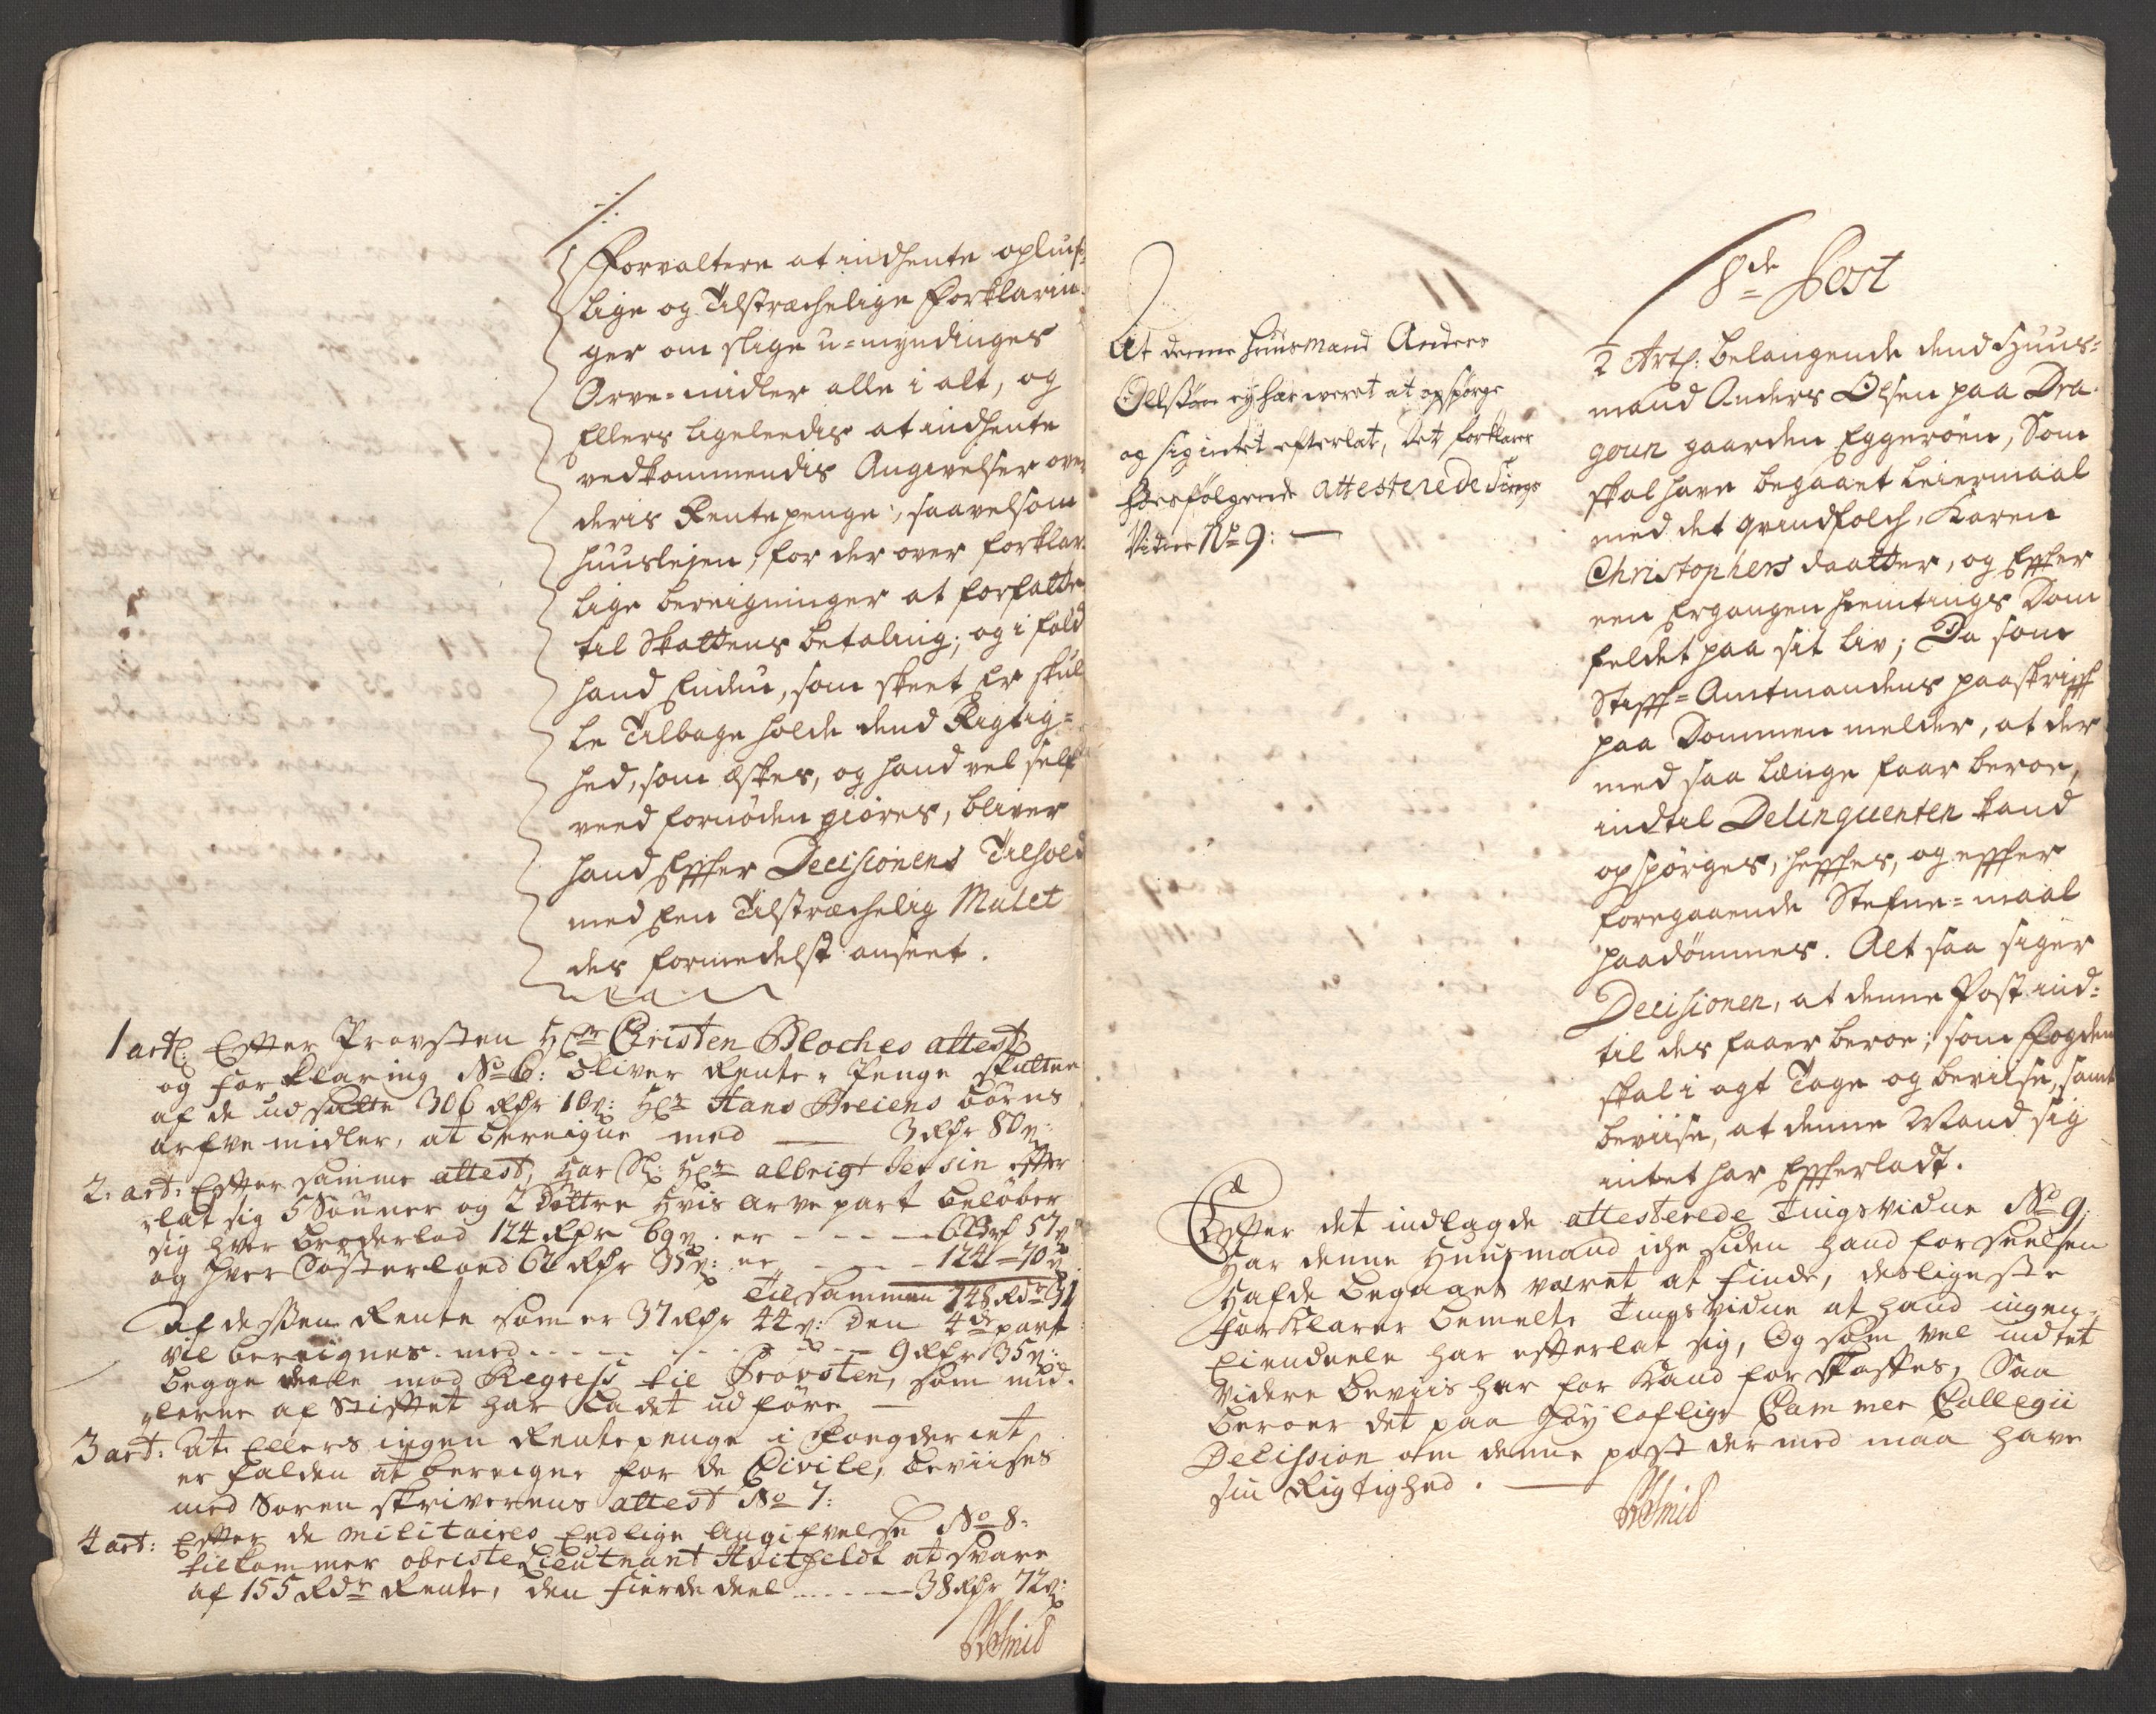 Forvaltere at indhente opluis-
lige og Tilstræchelige Forklarin-
ger om slige u-myndinges
Arve-midler alle i alt, og
Ellers ligeleedis at indhente
vedkommendis Angivelser over
deris Rentepenge, saavelsom
huusleyen, for der over forklar-
lige bereigninger at forfatte
til Skattens betaling; og i fald
hand Endnu, som skeet Er skul-
le Tilbage holde dend Rigtig-
hed, som æskes, og hand vel self
veed fornøden giøres, bliver
hand Effter Decisionens Tilhold
med Een Tilstræchelig Mulct
des formedelst anseet.
1 artl: Efter Provsten Hr Christen Bloches attest
og forklaring No 6: bliver Rente-Penge skatten
af de udsatte 306 Rdr 10 s: Hr Hans Breiens børns
arfve midler, at bereigne med — 3 Rdr 80 s:
2: art: Efter samme attest, har Sl: Hr albrigt Jensin efter
lat sig 5 Sønner og 2 Døttre hvis arve part beløber
sig hver broderlod 124 Rdr 69 s: er - - - 6 57 s
og hver Søsterlaad 62 Rdr 35 s: er - - - 124 - 70 s
Tilsammen 748 Rdr 31
Af dessen Rente som er 37 Rdr 44 s: den 4de part
vil bereignes med - - - - - - 9 Rdr 35 s:
begge deele med Regress til Provsten, som mid-
lerne af Stiftet har ladet udføre —
3 art: at Ellers ingen Rentepenge i Fougderiet
er falden at bereigne for de Civile, beviises
med Soren skriverens attest No 7:
4 art: Efter de Militaires Endlige Angifvelse No 8:
tilkommer obriste Lieutnant Hvitfeldt at svare
af 155 Rdr Rente, den fierde deel - - - 38 Rdr 72 s:
At denne huusmand Anders
Ollssøn ey har weret at opspørge
og sig intet efterlat, det forklarer
hosfølgende attesterede Tings
Vidne No 9: —
8de Post
2 Artl: belangende dend Huus-
mand Anders Olsen paa Dra-
goun gaarden Eggerøen, Som
skal have begaaet Leiermaal
med det qvindfolch, Karen
Christophers daatter, og Effter
een Ergangen hiemtings Dom
feldet paa sit Liv; Da som
Stifft-Amtmandens paaskrifft
paa Dommen melder, at der
med saa længe faar beroe,
indtil Delinquenten kand
opspørges, hefftes, og effter
foregaaende Stefne-maal
paadømmes. Alt saa siger
Decisionen, at denne Post ind-
til des faaer beroe; som Fogden
skal i agt Tage og bevise, samt
beviise, at denne Mand sig
intet har Effterladt.
Efter det indlagde attesterede Tingsvidne No 9;
har denne Huusmand iche siden hand forseelsen
hafde begaaet været at finde, desligeste
forklarer bemelte Tingsvidne at hand ingen
Eiendeele har efterlat sig, Og som vel indtet
videre beviis her for kand forskaffes, Saa
beroer det paa høyloflige Cammer Collegii
Decission om denne post der med maa have
sin Rigtighed. —